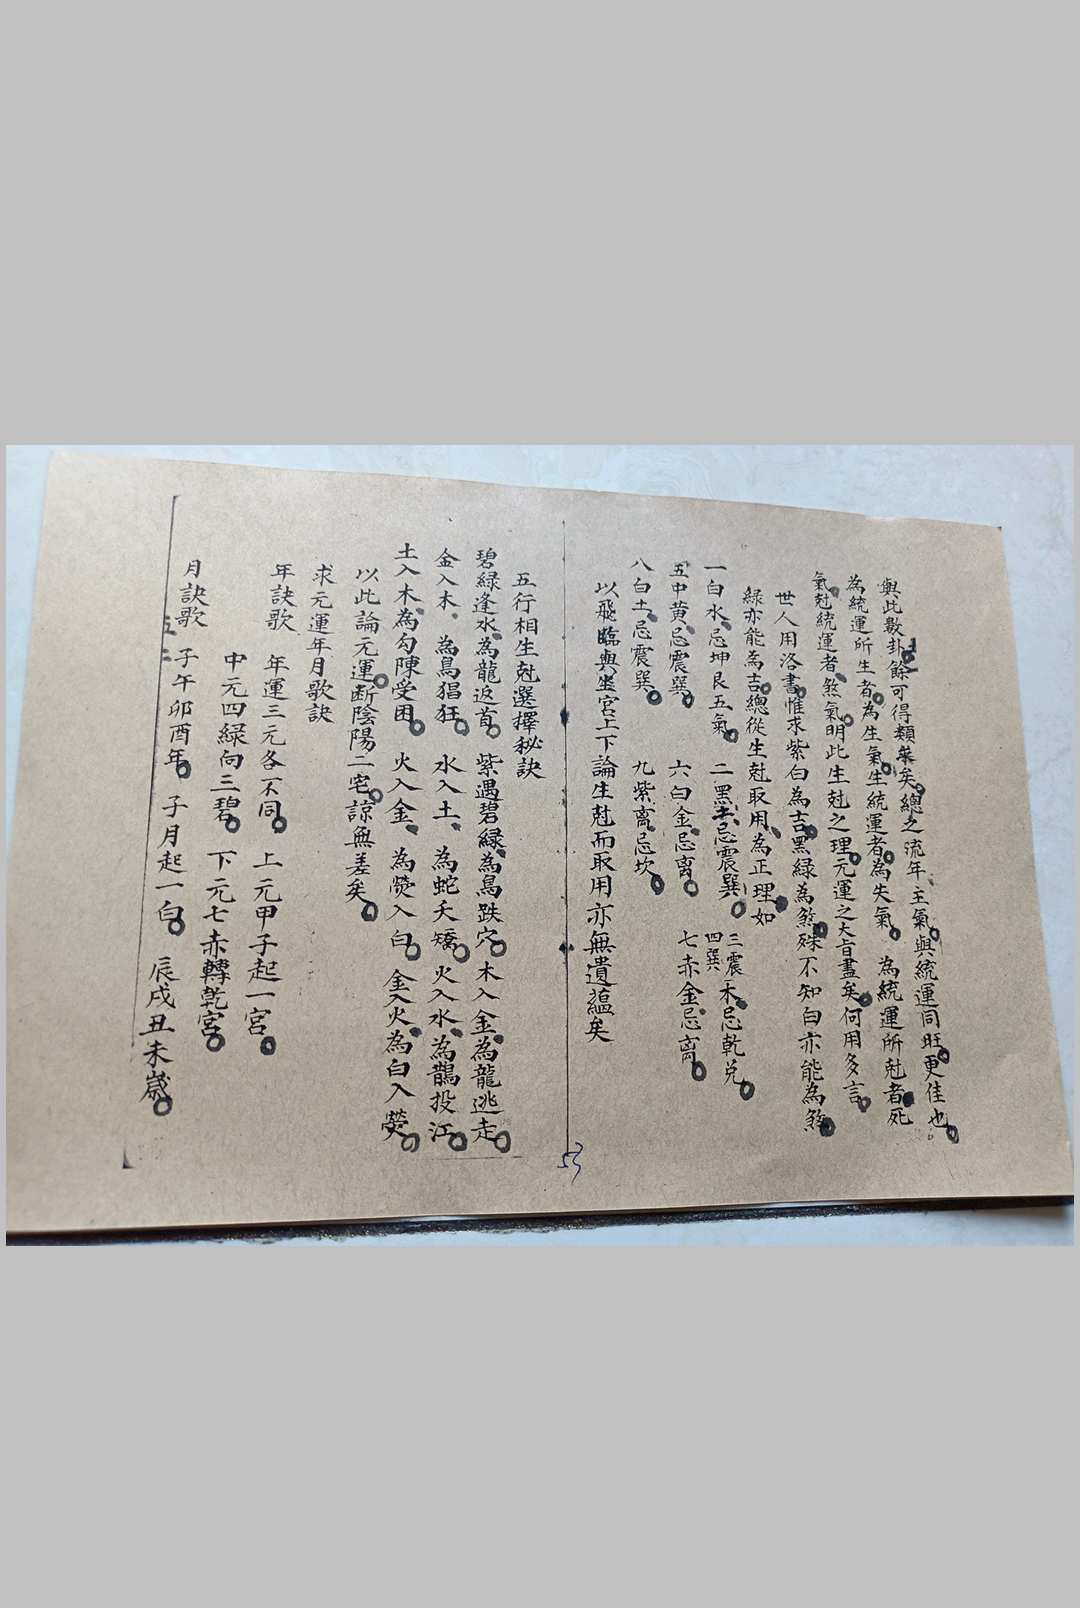 與此數卦餘可得類葉矣總之流年主氣與統運同旺更佳也
為統運所生者為生氣生統運者為失氣 為統運所尅者死
氣尅統運者煞氣明此生尅之理元運之大旨盡矣何用多言
世人用洛書惟求紫白為吉黑綠為煞殊不知白亦能為煞
綠亦能為吉總從生尅取用為正理如
一白水忌坤艮五氣 二黑土忌震巽 三震四巽木忌乾兌
五中黃忌震巽 六白金忌离 七赤金忌离
八白土忌震巽 九紫离忌坎
以飛臨與坐宮上下論生尅而取用亦無遺蘊矣
53
五行相生尅選擇秘訣
碧綠逢水為龍返首 紫遇碧綠為鳥跌穴 木入金為龍逃走
金入木 為鳥猖狂 水入土 為蛇夭矯 火入水為鵲投江
土入木為勾陳受困 火入金 為熒入白 金入火為白入熒
以此論元運斷陰陽二宅諒無差矣
求元運年月歌訣
年訣歌 年運三元各不同 上元甲子起一宮
中元四綠向三碧 下元七赤轉乾宮
月訣歌 子午卯酉年 子月起一白 辰戌丑未歲